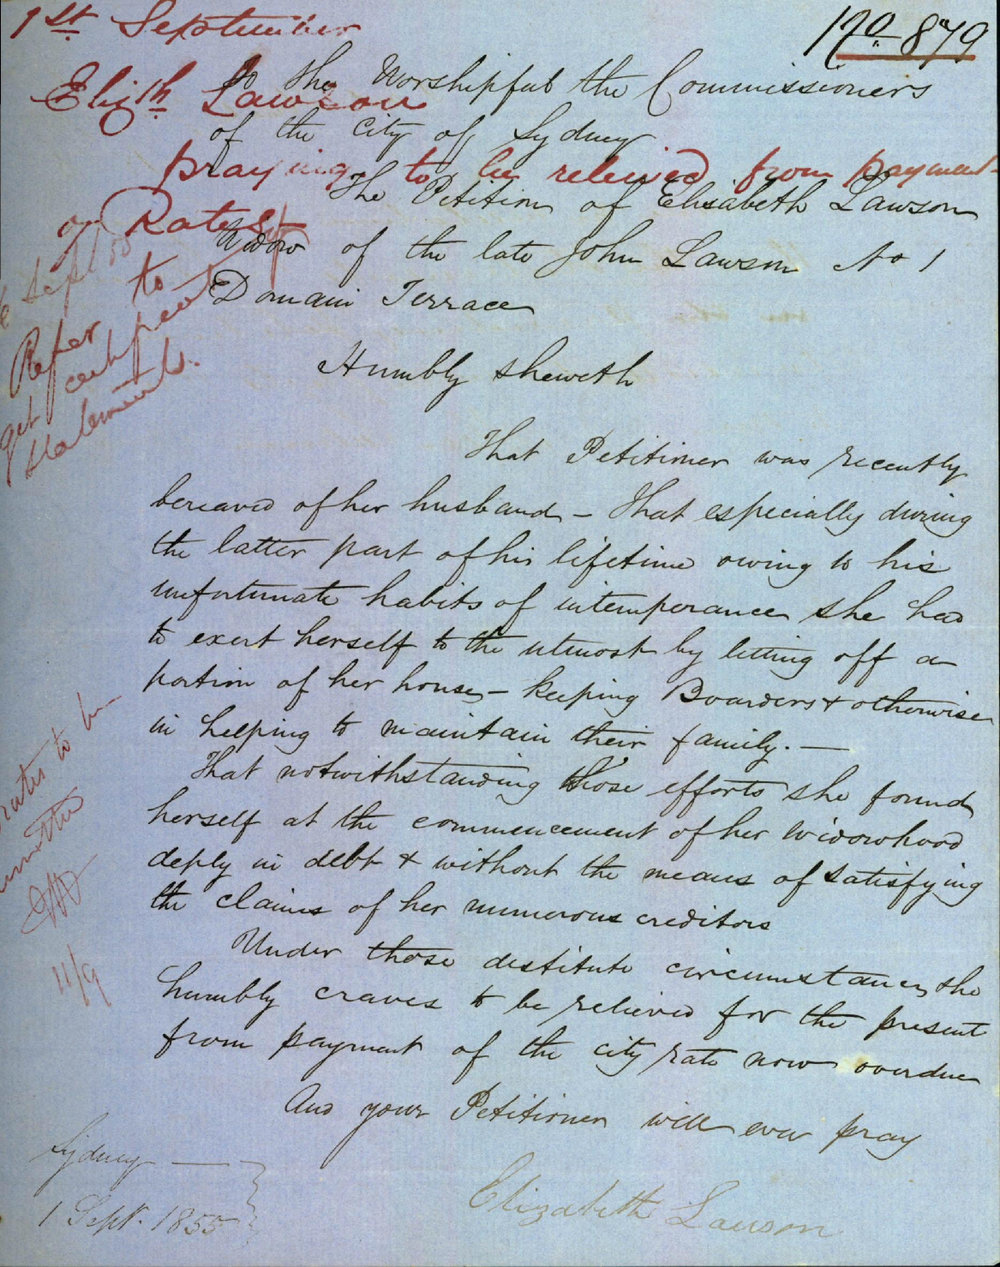 1st September
No 879
Elizth Lawson
praying to be relieved from payment
of Rates
To the Worshipful the Commissioners
of the City of Sydney
The Petition of Elisabeth Lawson
Widow of the late John Lawson No 1
Domain Terrace
Humbly sheweth
That Petitioner was recently
bereaved of her husband – That especially during
the latter part of his lifetime owing to his
unfortunate habits of intemperance she had
to exert herself to the utmost by letting off a
portion of her house – keeping Boarders & otherwise
in helping to maintain their family. —
That notwithstanding those efforts she found
herself at the commencement of her Widowhood
deply in debt & without the means of satisfying
the claims of her numerous creditors
Under those destitute circumstances she
humbly craves to be relieved for the present
from payment of the city rate now overdue
And your Petitioner will ever pray
Elizabeth Lawson
Sydney —
1 Sept. 1855
Sept 55
Refer to
get
statements.
rates to be
11/9